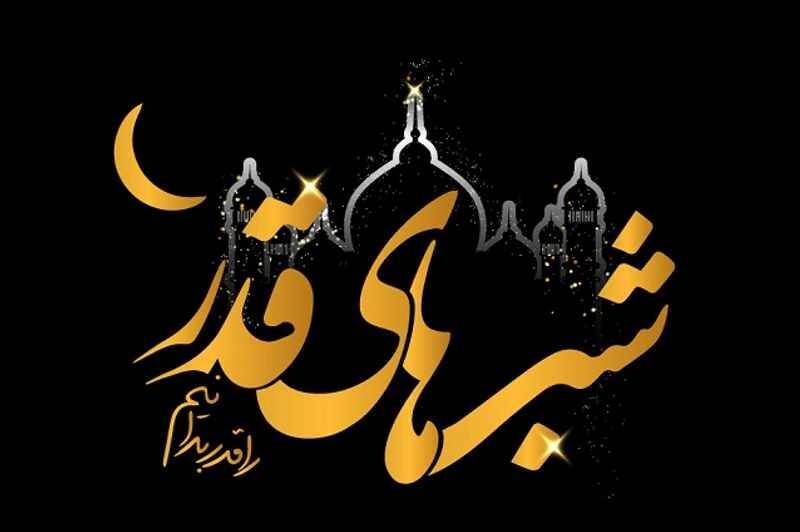 شب‌های قدر
را قدر بدانیم